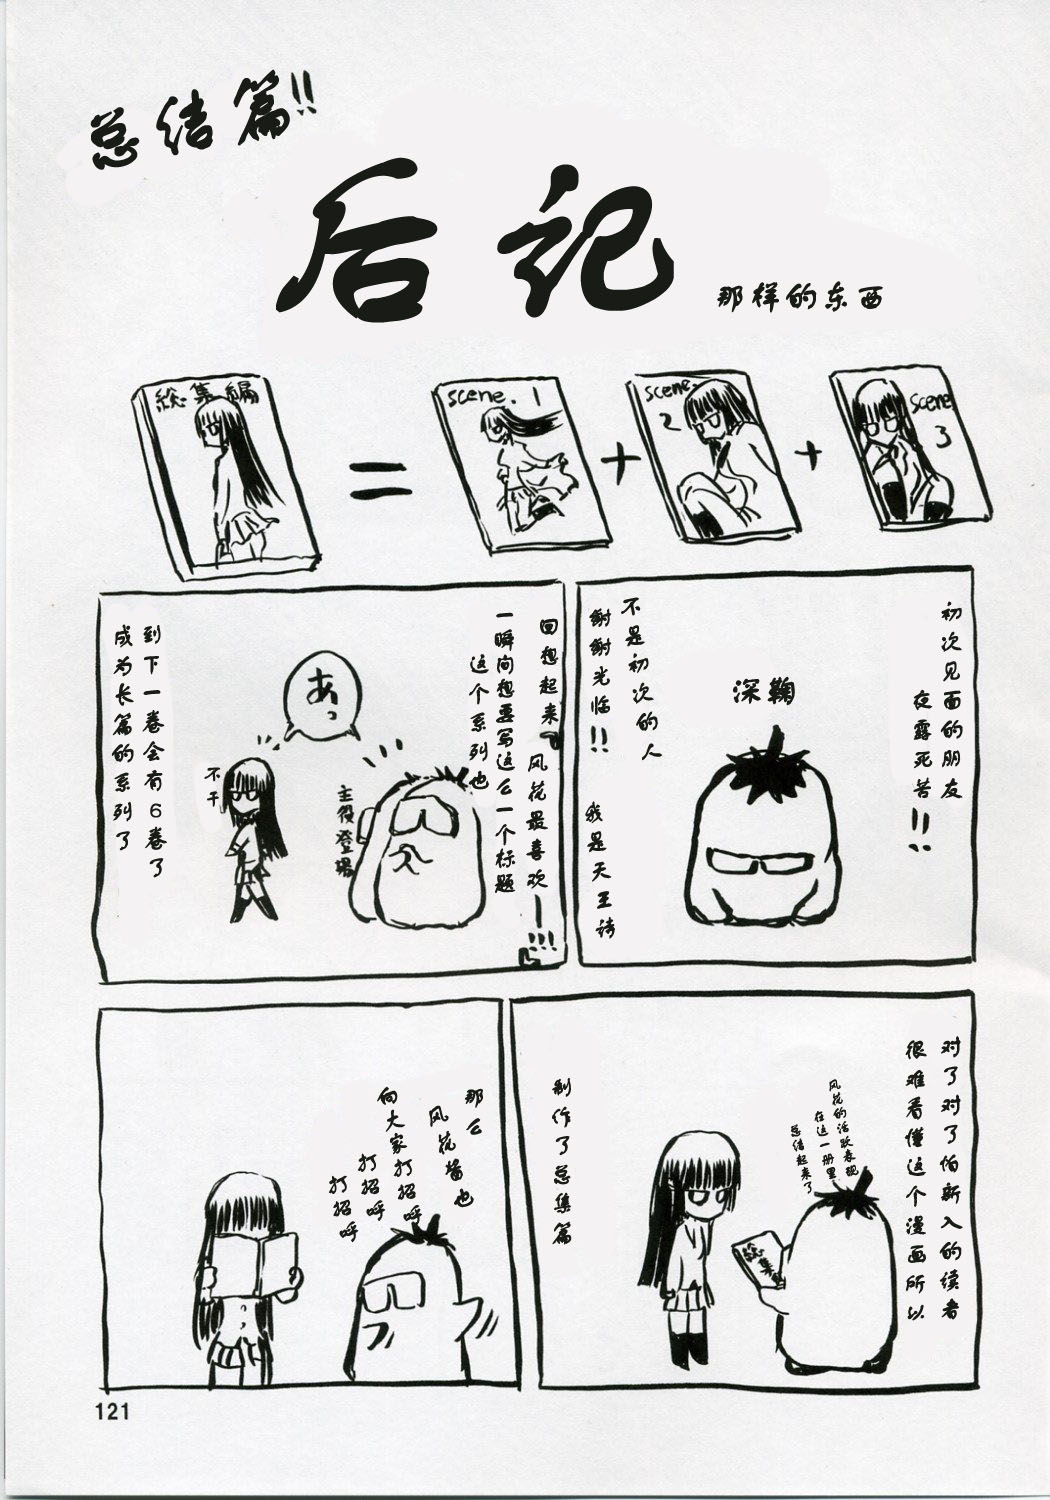 总结篇!!
后记
那样的东西
総集編
=
scene. 1
+
scene.
2
+
scene.
3
初次见面的朋友
夜露死苦!!
深鞠
不是初次的人
谢谢光临!!
我是天王诗
回想起来
风花最喜欢—!!!
一瞬间想要写这么一个标题
这个系列也
あっ
主役登場
不干
到下一卷会有6卷了
成为长篇的系列了
对了对了怕新入的续者
很难看懂这个漫画所以
风花的活跃表现
在这一册里
总结起来了
総集
制作了总集篇
那么
风花酱也
向大家打招呼
打招呼
打招呼
121